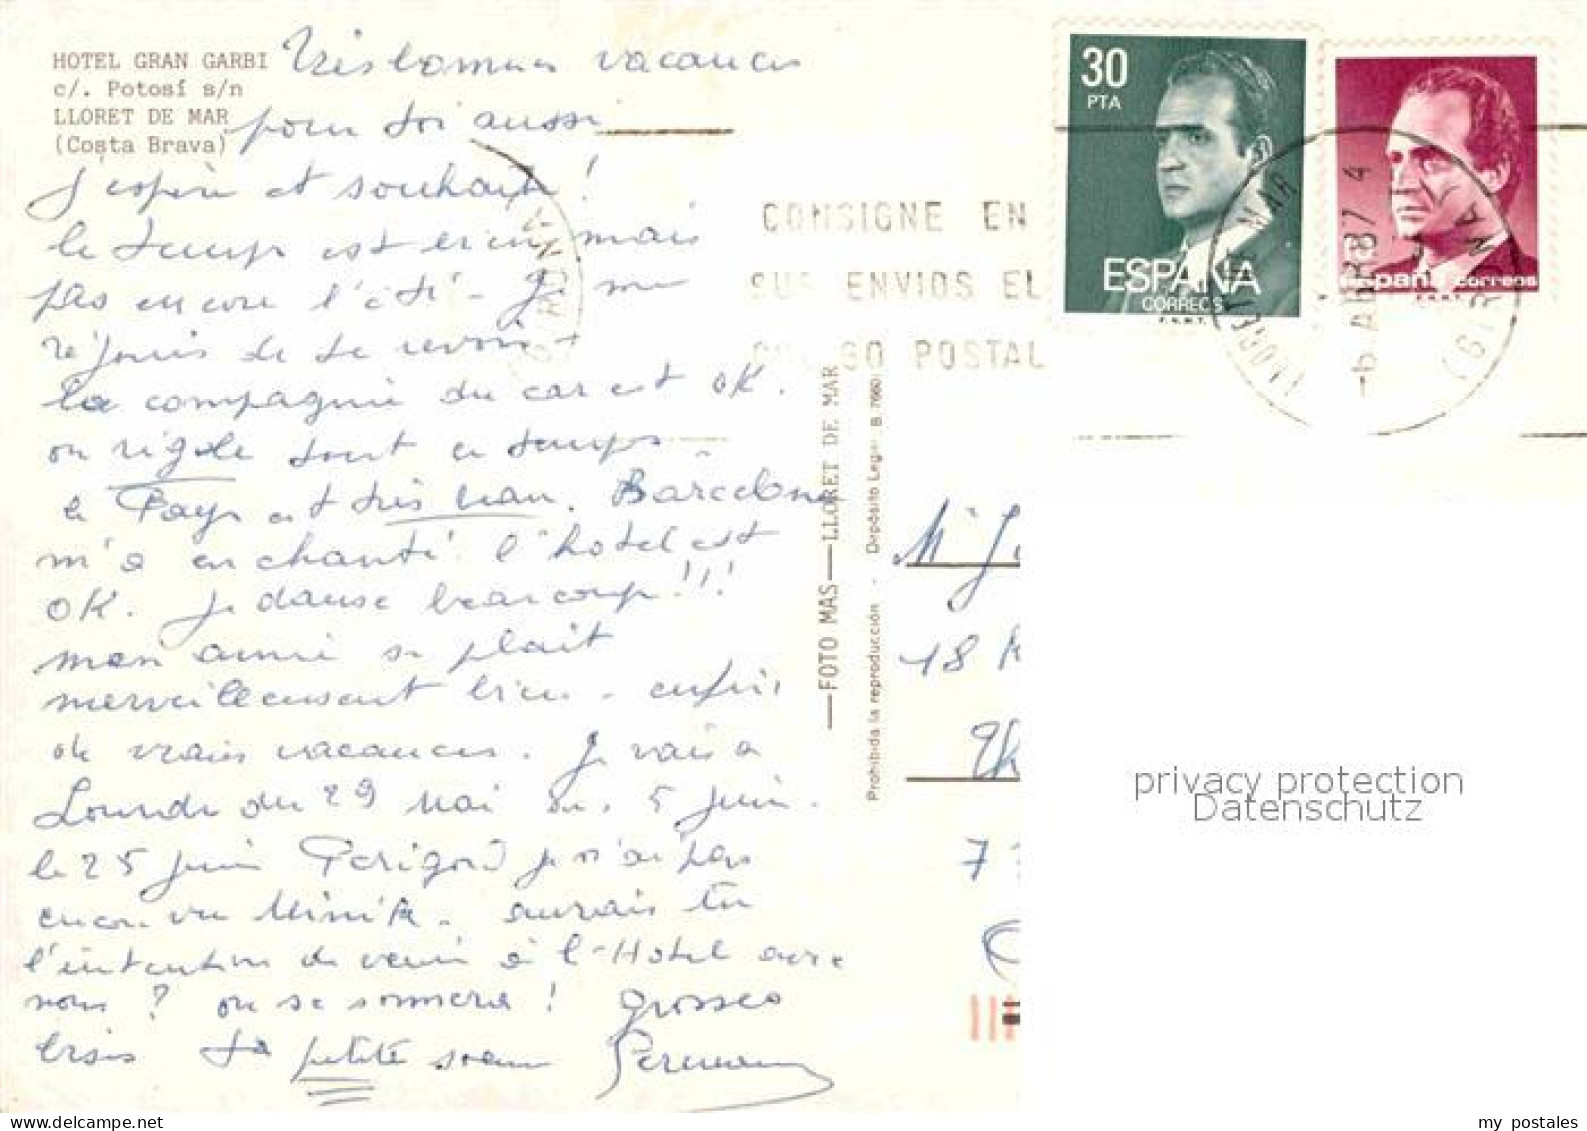 HOTEL GRAN GARBI
c/. Potosí s/n
LLORET DE MAR
(Costa Brava)
Très bonnes vacances
pour toi aussi
J'espère et souhaite !
le temps est bien mais
pas encore l'été - Je me
réjouis de te revoir
la compagnie du car est OK.
on rigole tout le temps
le Pays est très beau. Barcelone
m'a enchanté. l'hotel est
OK. Je danse beaucoup !!!
mon amie se plait
merveilleusement bien - enfin
de vraies vacances. Je vais à
Lourdes du 29 Mai au 5 Juin.
le 25 Juin Perigord je n'ai pas
encore vu - aurais tu
l'intention de venir à l'Hotel avec
nous ? on se sonnera ! grosses
bises ta petite soeur
CONSIGNE EN
SUS ENVIOS EL
GO POSTAL
30
PTA
ESPAÑA
CORREOS
F.N.M.T.
españa correos
-6 ABR 87 4
(GIRONA)
FOTO MAS — LLORET DE MAR
Prohibida la reproducción - Depósito Legal B. 7660
18
7
privacy protection
Datenschutz
my postales